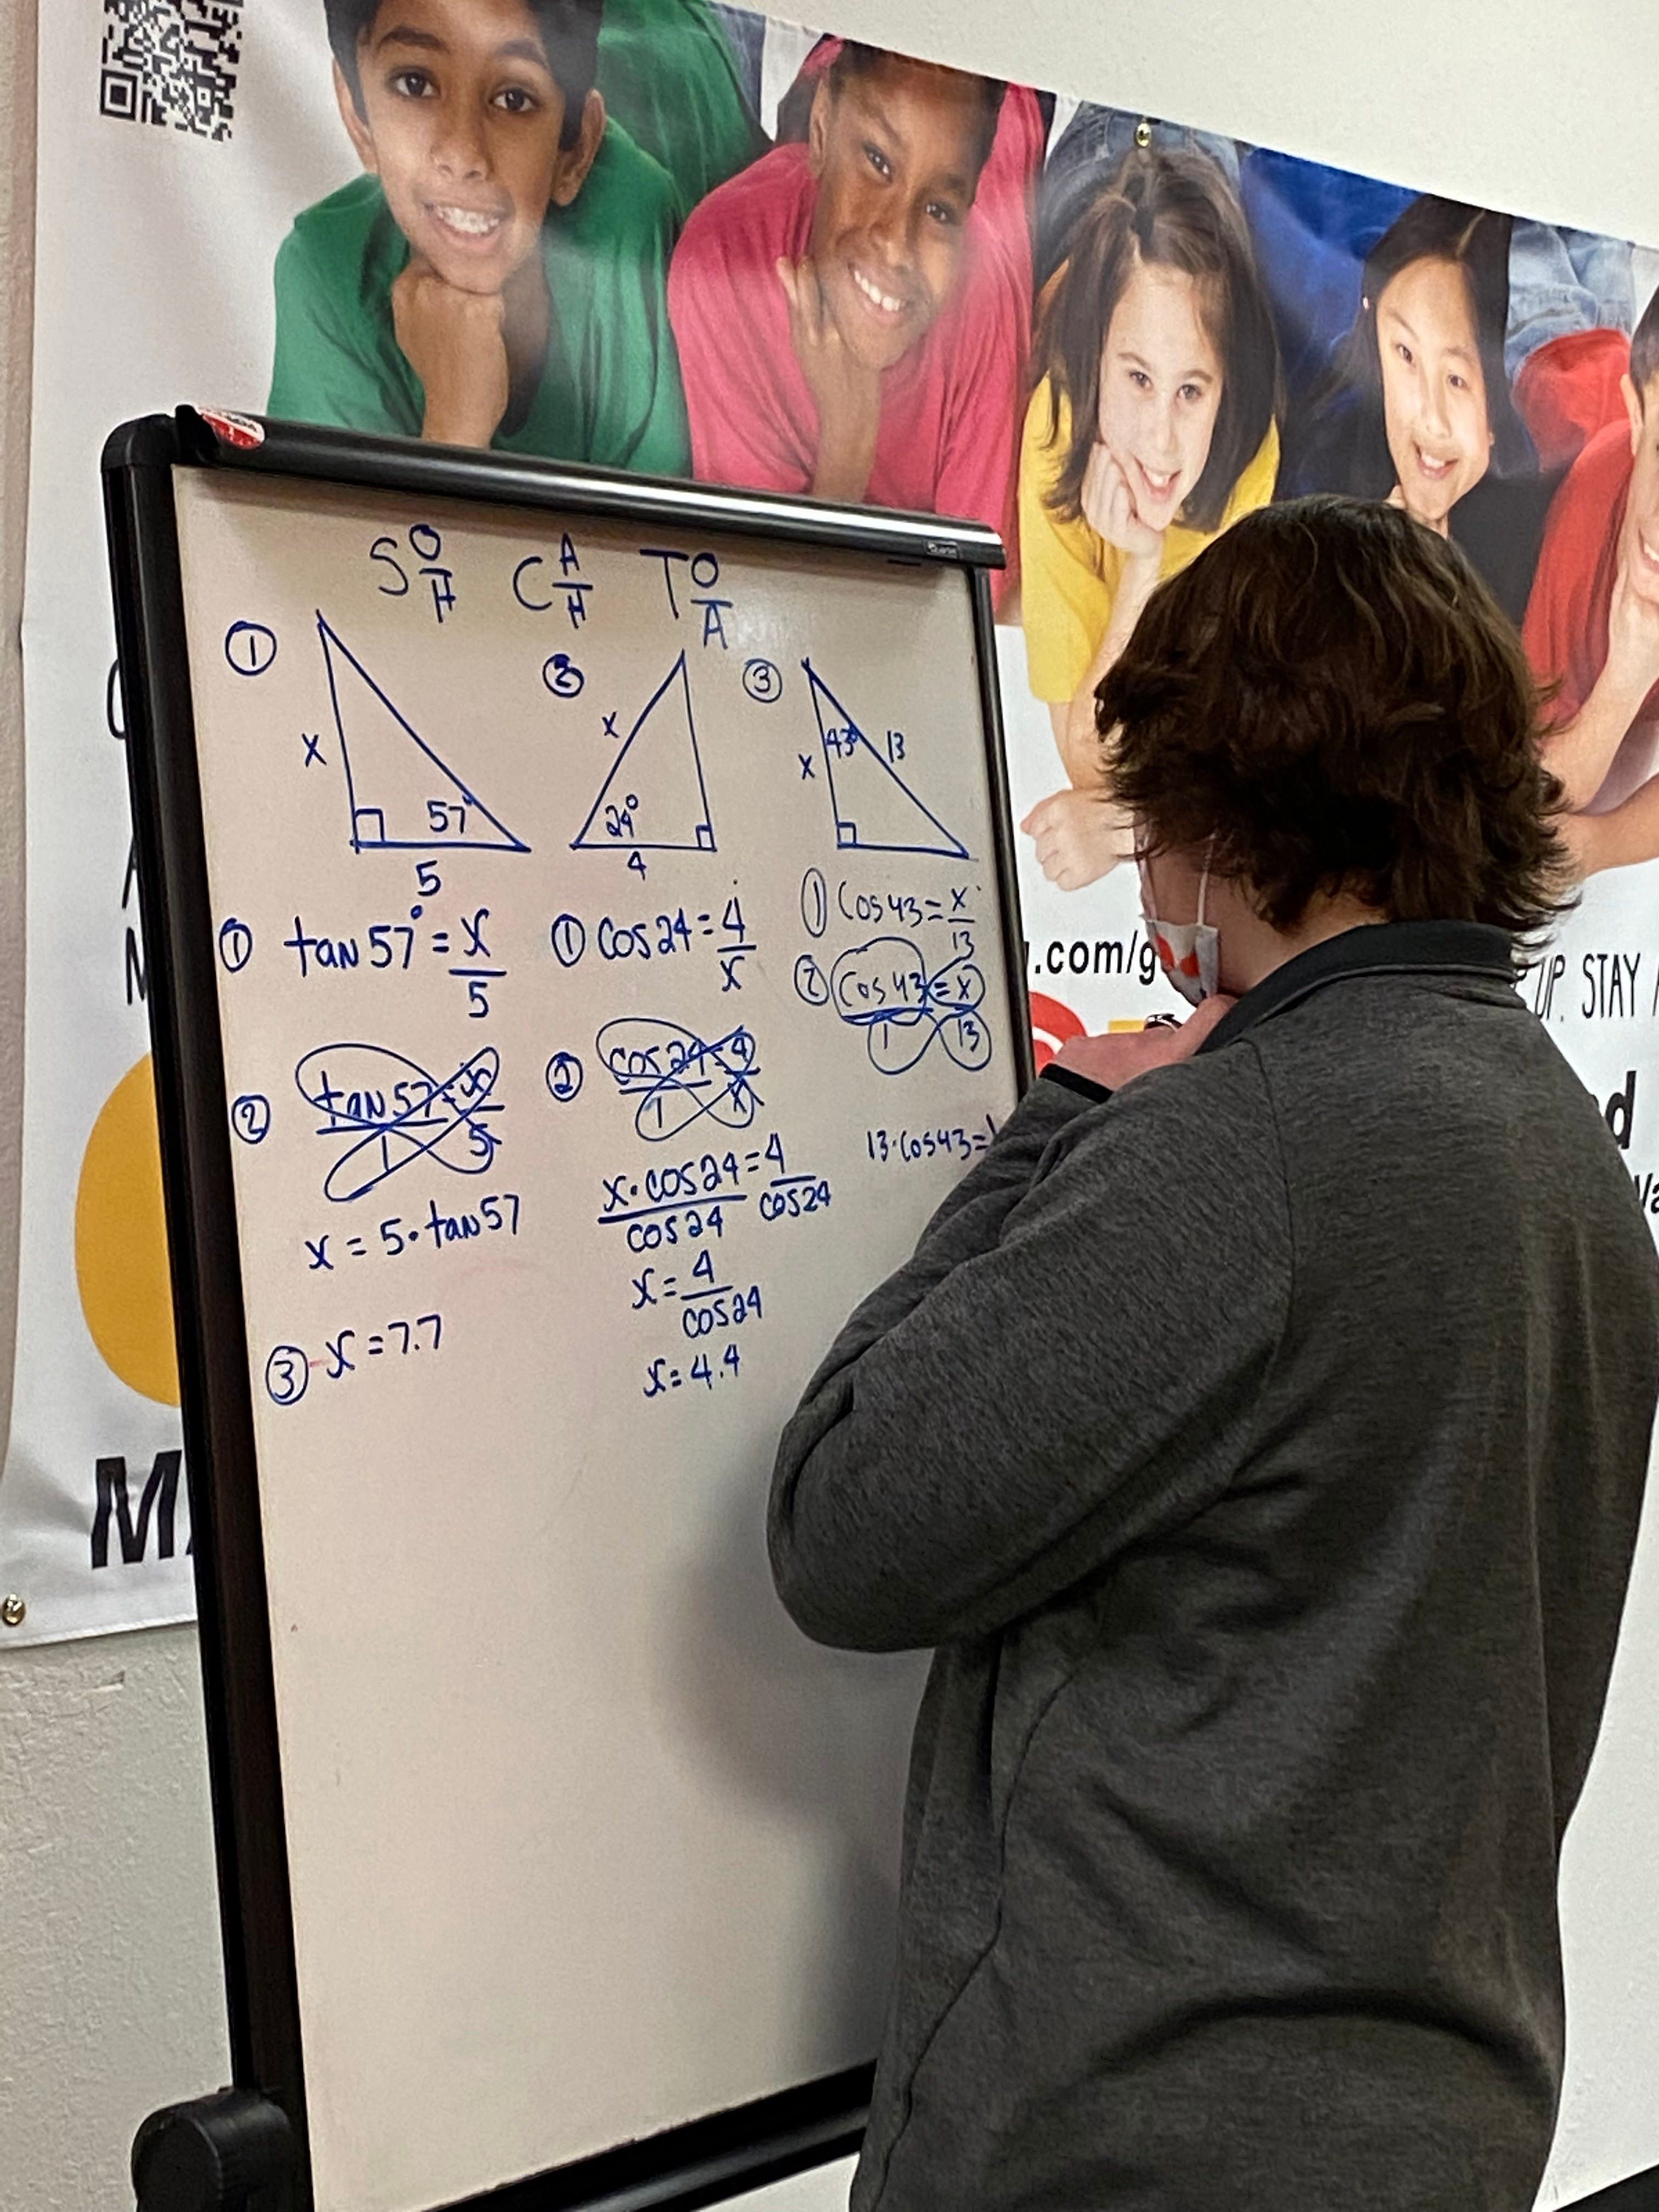 S O/H C A/H T O/A
① ② ③
x 57° 5
x 24° 4
43° 13 x
① tan 57° = x/5
② tan 57/1 = x/5
x = 5 · tan 57
③ x = 7.7
① cos 24 = 4/x
② cos 24/1 = 4/x
x · cos 24/cos 24 = 4/cos 24
x = 4/cos 24
x = 4.4
① Cos 43 = x/13
② Cos 43/1 = x/13
13 · cos 43 =
.com/g
UP. STAY
M